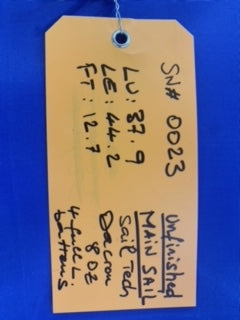 SN# 0023
LU: 37.9
LE: 44.2
FT: 12.7
Unfinished
MAIN SAIL
Sail Tech
8 oz
Dacron
4 full L.
battens